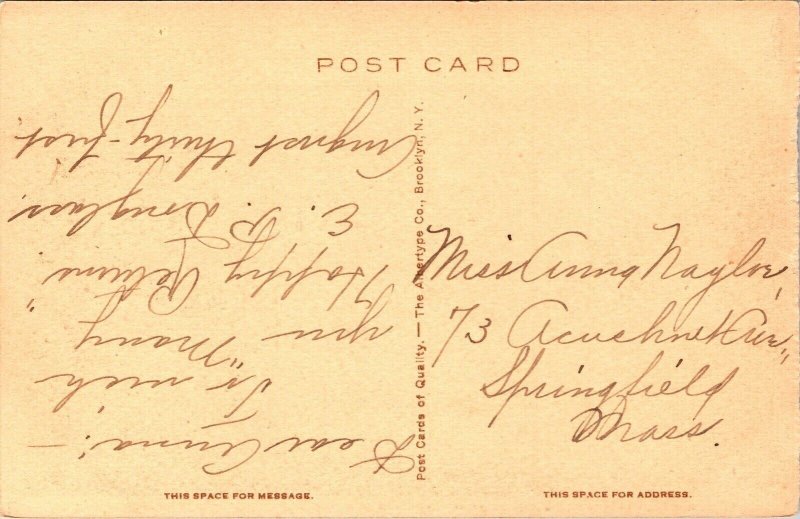 POST CARD
Dear Anna:—
To wish
you "Many
Happy Returns"
E. B. Douglass
August thirty-first
Post Cards of Quality. — The Albertype Co., Brooklyn, N. Y.
Miss Anna Naylor,
73 Acushnet Ave.,
Springfield
Mass.
THIS SPACE FOR MESSAGE.
THIS SPACE FOR ADDRESS.